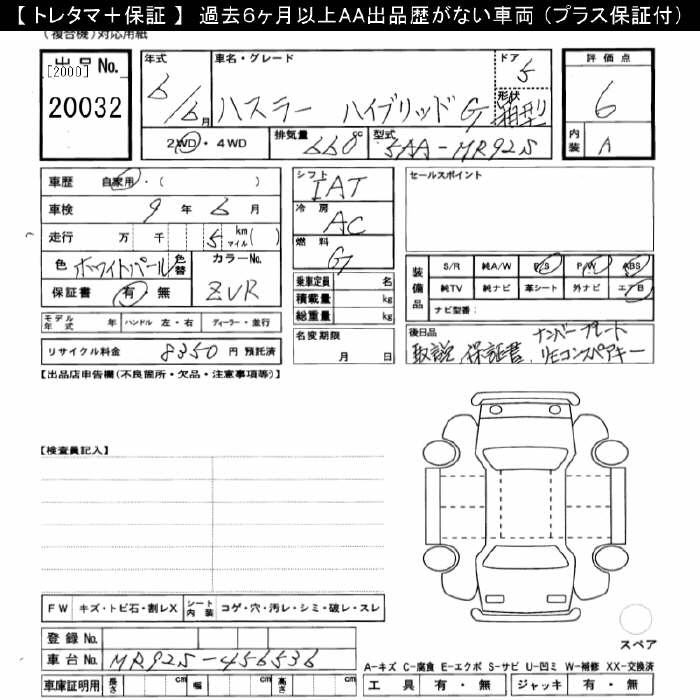 【 トレタマ＋保証 】 過去６ヶ月以上AA出品歴がない車両 （プラス保証付）
（複合機）対応用紙
出品No.
[2000]
20032
年式
6/6月
車名・グレード
ハスラー ハイブリッドG
ドア
5
形状
箱型
評価点
6
内装
A
2WD・4WD
排気量
660 cc
型式
5AA-MR92S
車歴 自家用・( )
車検 9年 6月
走行 万 千 5 km マイル( )
色 ホワイトパール 色替
カラーNo.
ZVR
保証書 有 無
モデル年式 年 ハンドル 左・右 ディーラー・並行
リサイクル料金 8350 円 預託済
シフト
IAT
冷房
AC
燃料
G
乗車定員 名
積載量 kg
総重量 kg
名変期限
月 日
セールスポイント
装備品
S/R 純A/W P/S P/W ABS
純TV 純ナビ 革シート 外ナビ エアB
ナビ型番:
後日品
ナンバープレート
取説、保証書、リモコンスペアキー
【出品店申告欄（不良箇所・欠品・注意事項等）】
【検査員記入】
FW キズ・トビ石・割レX シート内装 コゲ・穴・汚レ・シミ・破レ・スレ
登録No.
車台No. MR92S-456536
車庫証明用 長さ cm 幅 cm 高さ cm
スペア
A-キズ C-腐食 E-エクボ S-サビ U-凹ミ W-補修 XX-交換済
工具 有・無 ジャッキ 有・無